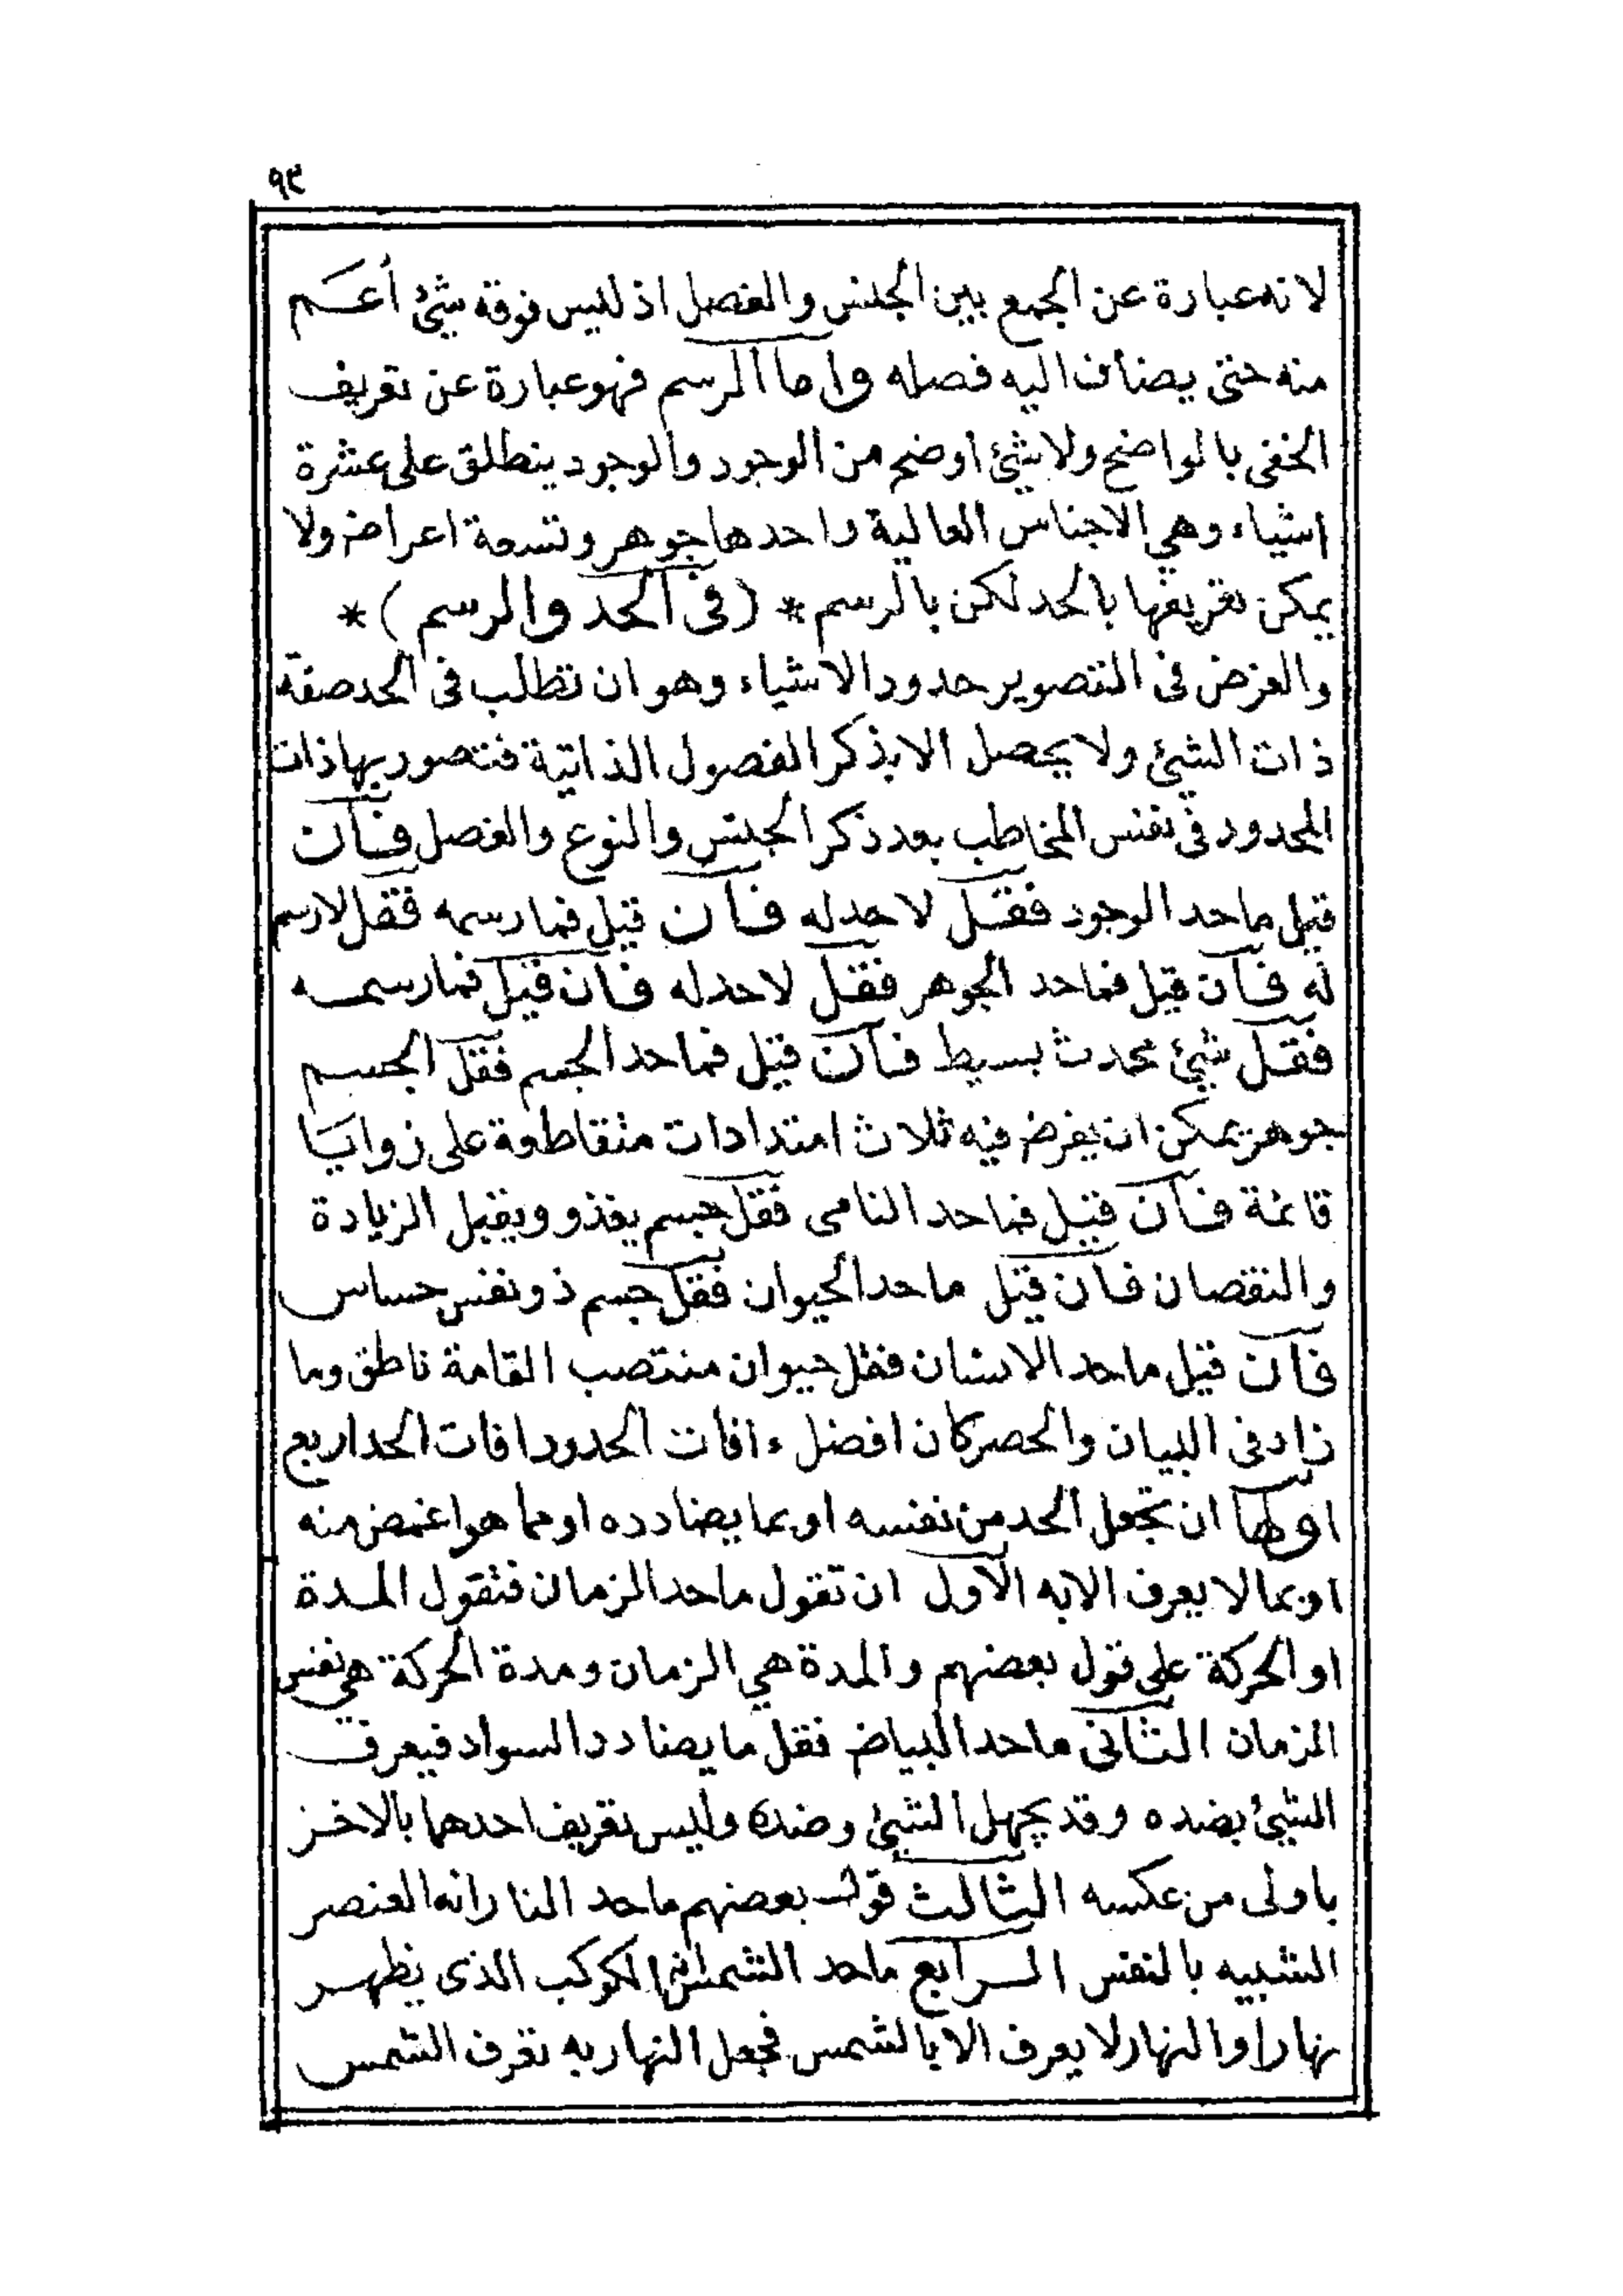 ٩٣
لانه عبارة عن الجمع بين الجنس والفصل اذ ليس فوقه شئ أعم
منه حتى يضاف اليه فصله واما الرسم فهو عبارة عن تعريف
الخفى بالواضح ولا شئ اوضح من الوجود والوجود ينطلق على عشرة
اشياء وهي الاجناس العالية واحدها جوهر وتسعة اعراض ولا
يمكن تعريفها بالحد لكن بالرسم * (فى الحد والرسم) *
والغرض فى التصوير حدود الاشياء وهو ان تطلب فى الحد صفة
ذات الشئ ولا يحصل الا بذكر الفصول الذاتية فتصور بها ذات
المحدود فى نفس المخاطب بعد ذكر الجنس والنوع والفصل فان
قيل ما حد الوجود فقل لا حد له فان قيل فما رسمه فقل لا رسم
له فان قيل فما حد الجوهر فقل لا حد له فان قيل فما رسمه
فقل شئ محدث بسيط فان قيل فما حد الجسم فقل الجسم
جوهر يمكن ان يفرض فيه ثلاث امتدادات متقاطعة على زوايا
قائمة فان قيل فما حد النامى فقل جسم يغذو ويقبل الزيادة
والنقصان فان قيل ما حد الحيوان فقل جسم ذو نفس حساس
فان قيل ما حد الانسان فقل حيوان منتصب القامة ناطق وما
زاد فى البيان والحصر كان افضل ءافات الحدود افات الحد اربع
اولها ان تجعل الحد من نفسه او بما يضادده او مما هو اغمض منه
او بما لا يعرف الا به الاول ان تقول ما حد الزمان فتقول المدة
او الحركة على قول بعضهم والمدة هي الزمان ومدة الحركة هي نفس
الزمان الثانى ما حد البياض فقل ما يضادد السواد فيعرف
الشئ بضده وقد يجهل الشئ وضده وليس تعريف احدهما بالاخر
باولى من عكسه الثالث قول بعضهم ما حد النار انه العنصر
الشبيه بالنفس الرابع ما حد الشمس انها الكوكب الذى يظهر
نهارا والنهار لا يعرف الا بالشمس فجعل النهار به تعرف الشمس